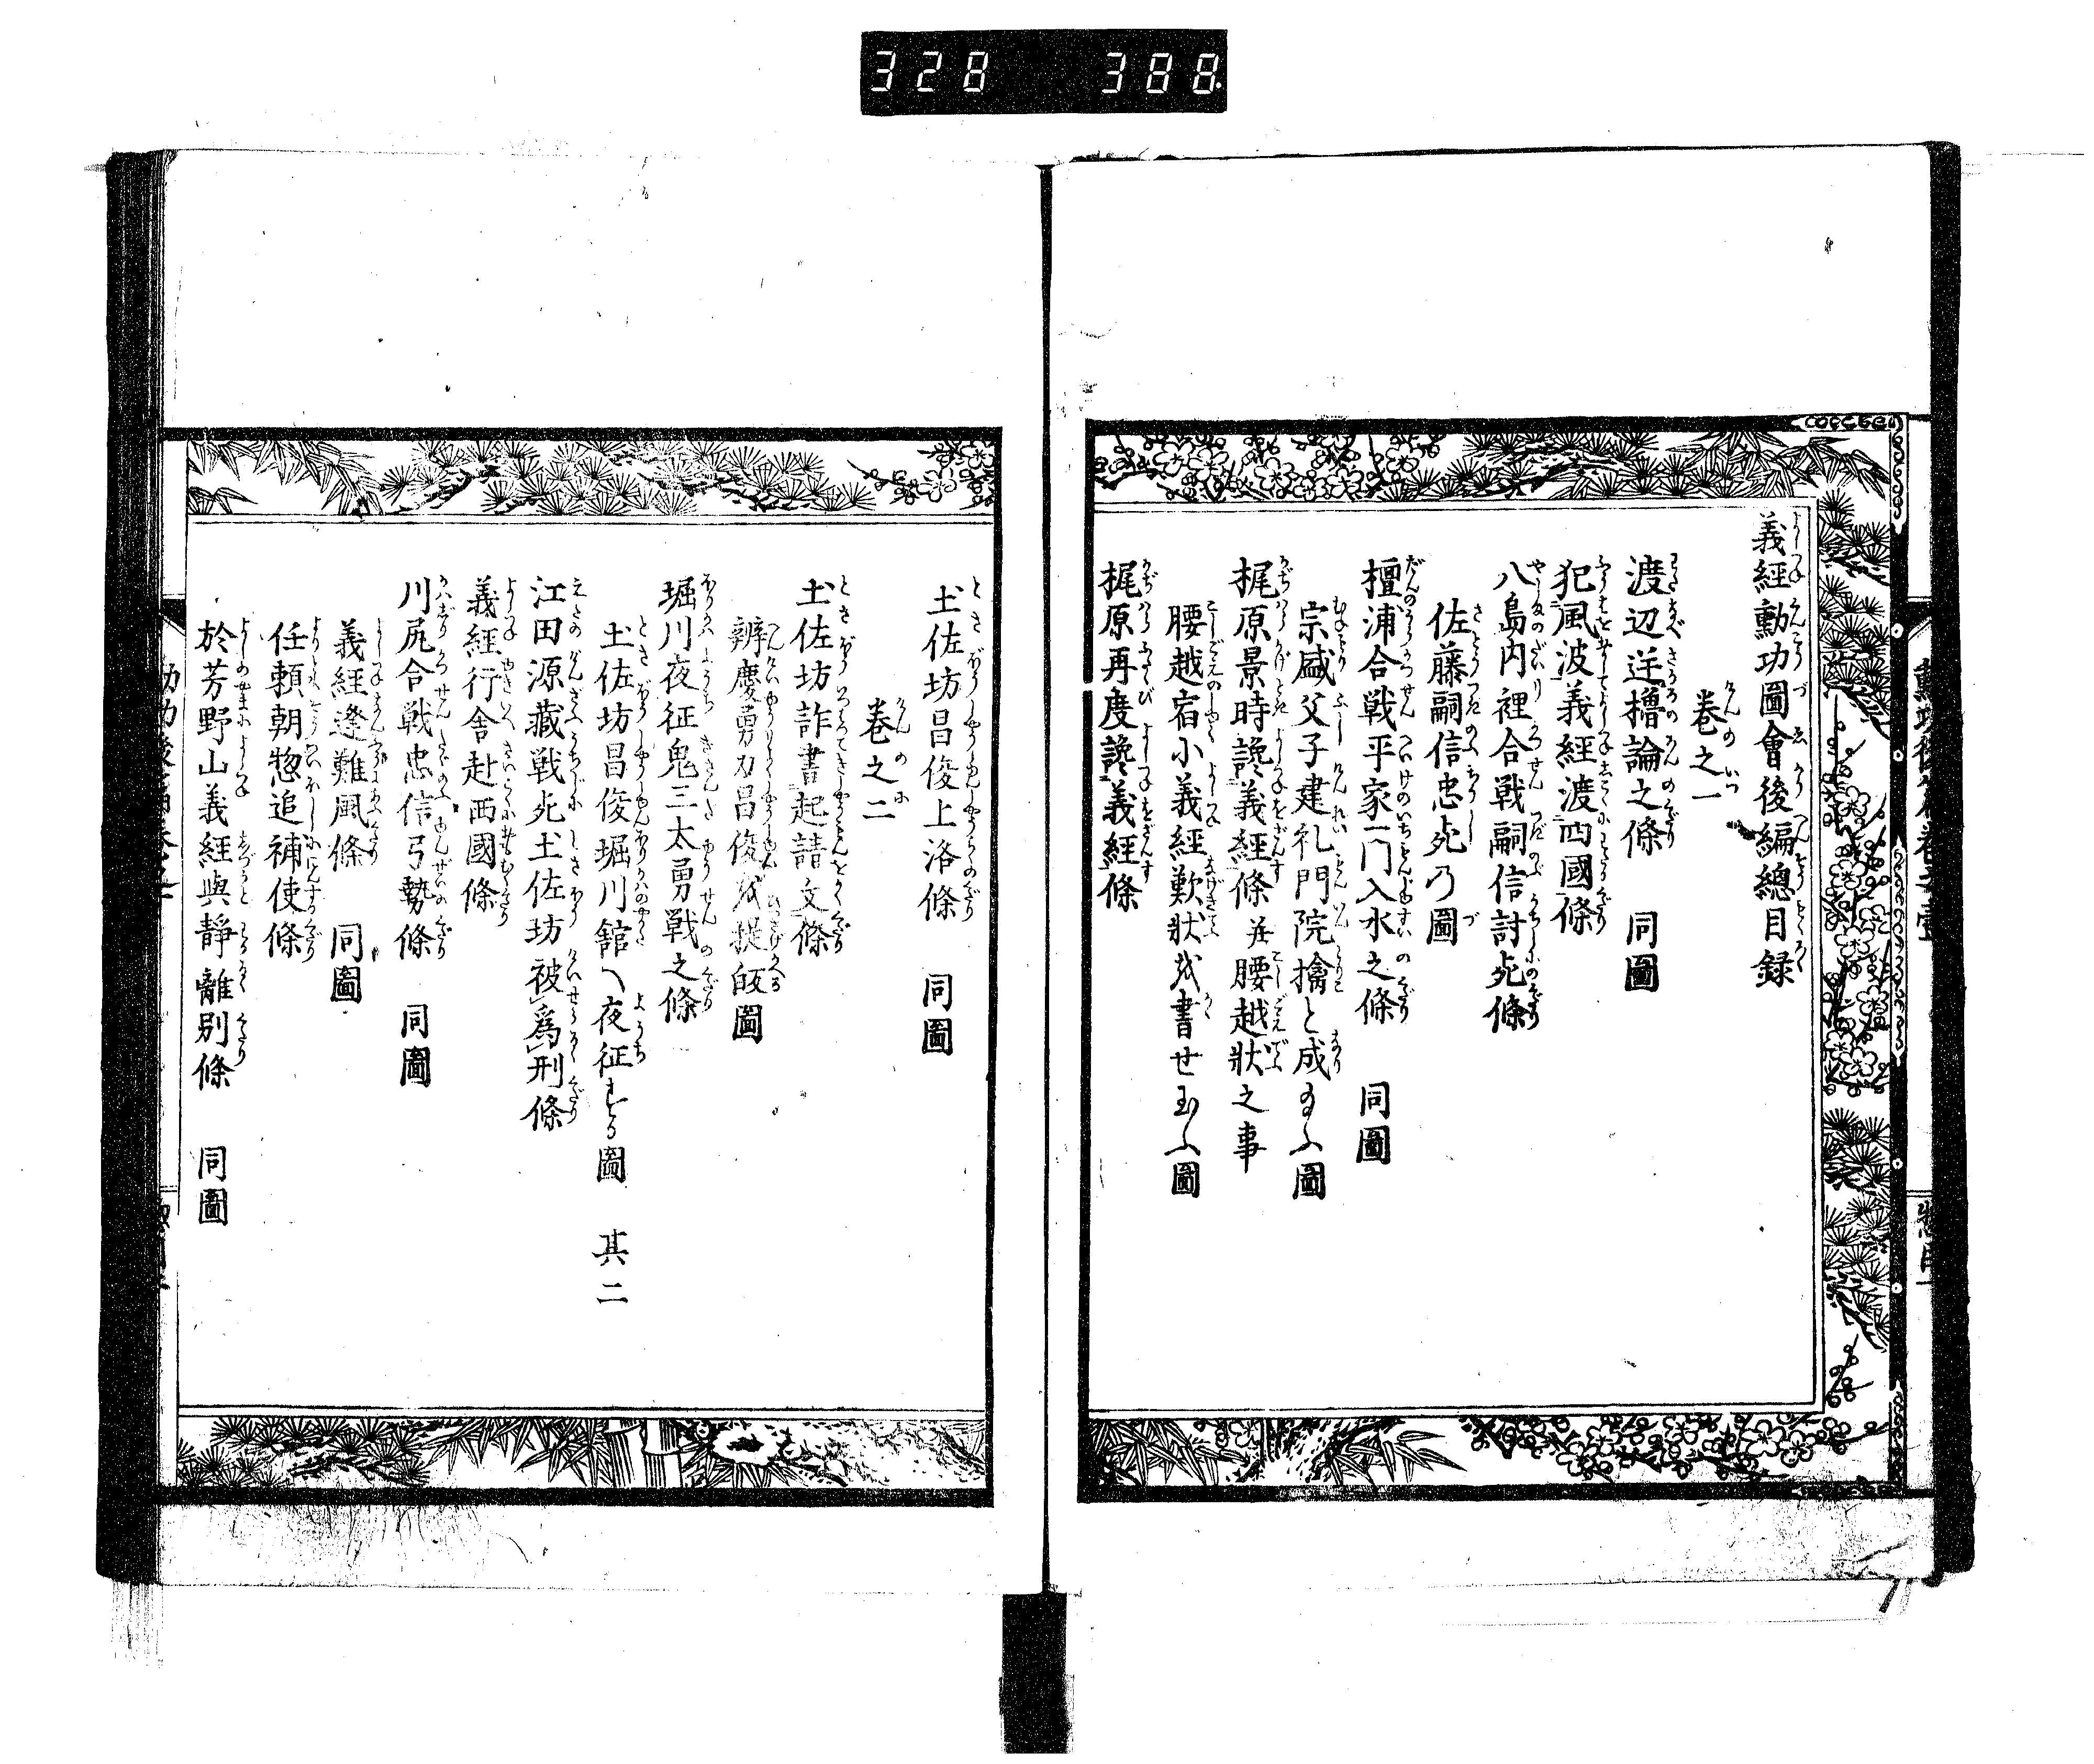 328 388
義經勳功圖會後編總目録
卷之一
渡辺逆櫓論之條 同圖
犯風波義經渡西國條
八島内裡合戦嗣信討死條
佐藤嗣信忠死乃圖
檀浦合戦平家一门入水之條 同圖
宗盛父子建礼門院擒と成玉ふ圖
梶原景時讒義經條 并腰越狀之事
腰越宿小義經歎狀を書せ玉ふ圖
梶原再度讒義經條
土佐坊昌俊上洛條 同圖
卷之二
土佐坊詐書起請文條
辨慶勇力昌俊を提皈圖
堀川夜征鬼三太勇戦之條
土佐坊昌俊堀川舘へ夜征する圖 其二
江田源藏戦死土佐坊被為刑條
義經行舍赴西國條
川尻合戦忠信弓勢條 同圖
義經逢難風條 同圖
任頼朝惣追補使條
於芳野山義經與靜離別條 同圖